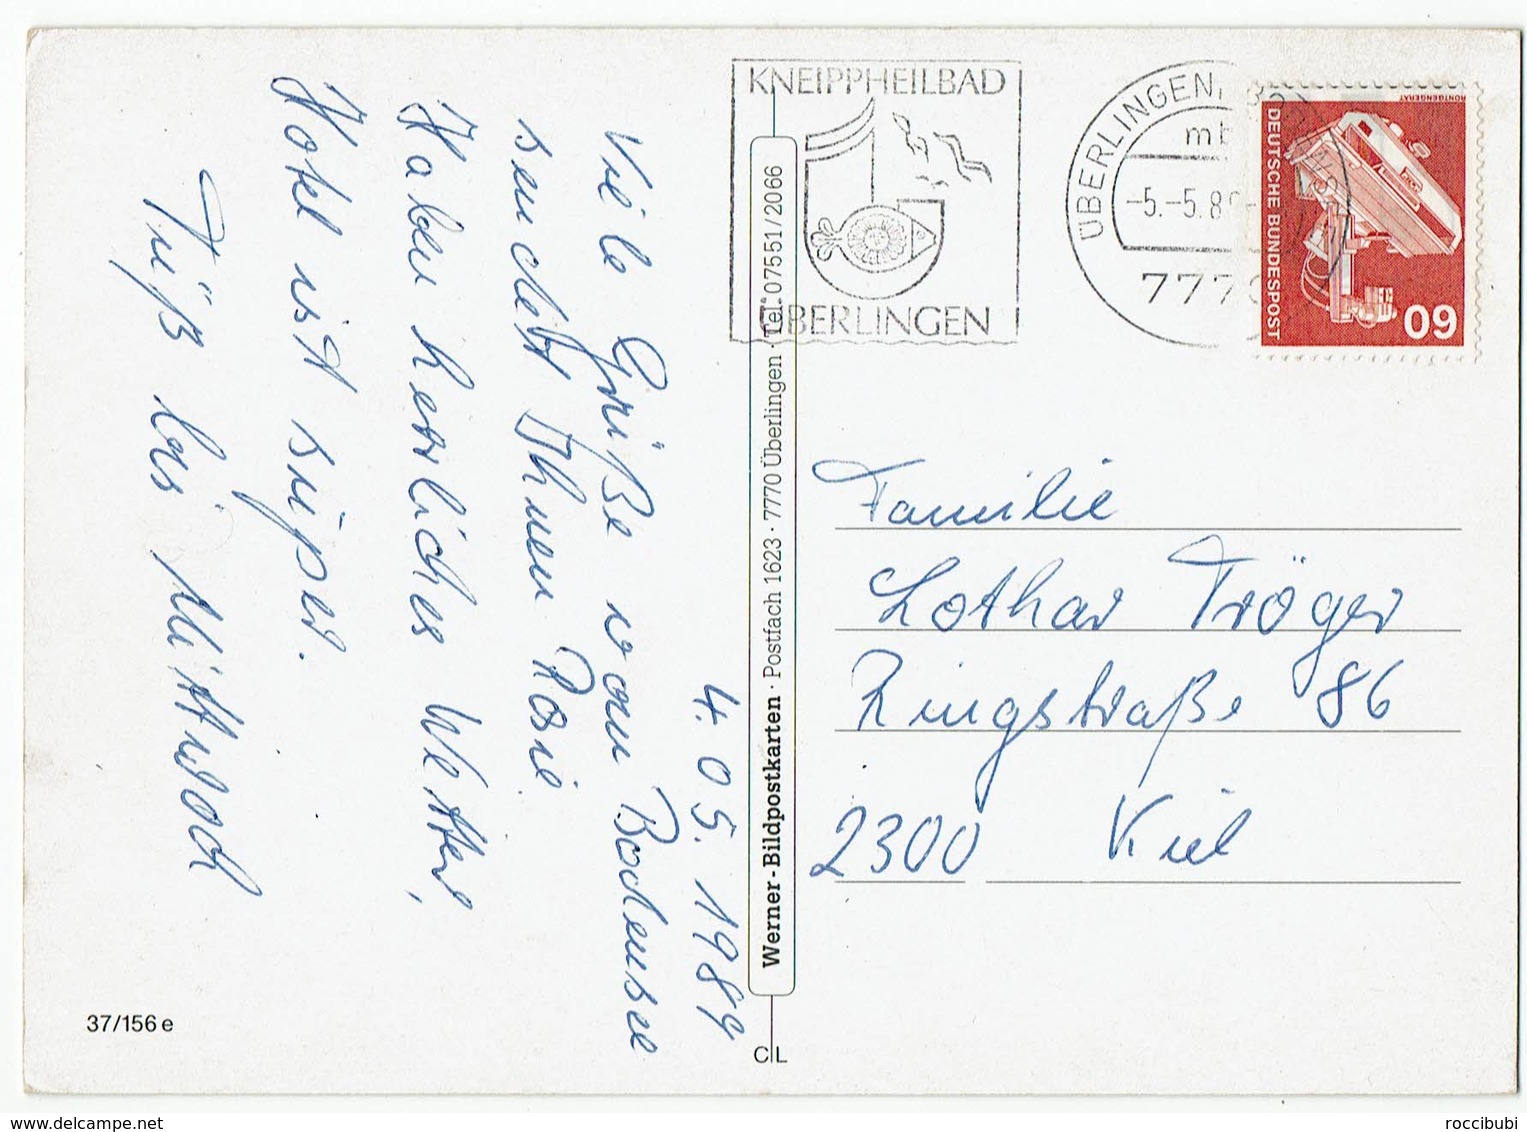 4.05.1989
Viele Grüße vom Bodensee
sendet Ihnen Rosie.
Haben herrliches Wetter,
Hotel ist super.
Tüß bis Mittwoch
37/156 e
Werner-Bildpostkarten · Postfach 1623 · 7770 Überlingen · Tel. 07551/2066
C L
KNEIPPHEILBAD
ÜBERLINGEN
ÜBERLINGEN,
mb
-5.-5.8
7770
RÖNTGENGERÄT
DEUTSCHE BUNDESPOST
60
Familie
Lothar Tröger
Ringstraße 86
2300 Kiel
delcampe.net
roccibubi